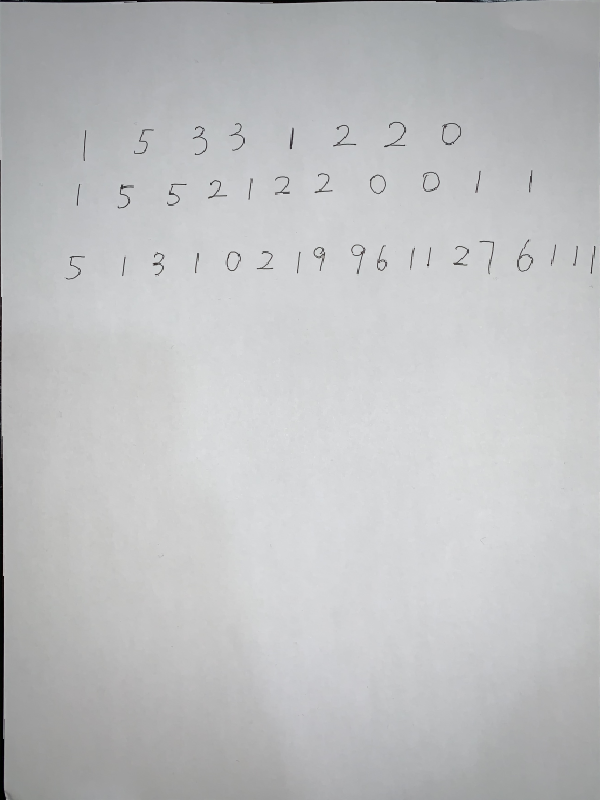 1 5 3 3 1 2 2 0
1 5 5 2 1 2 2 0 0 1 1
5 1 3 1 0 2 19 96 11 27 6 111